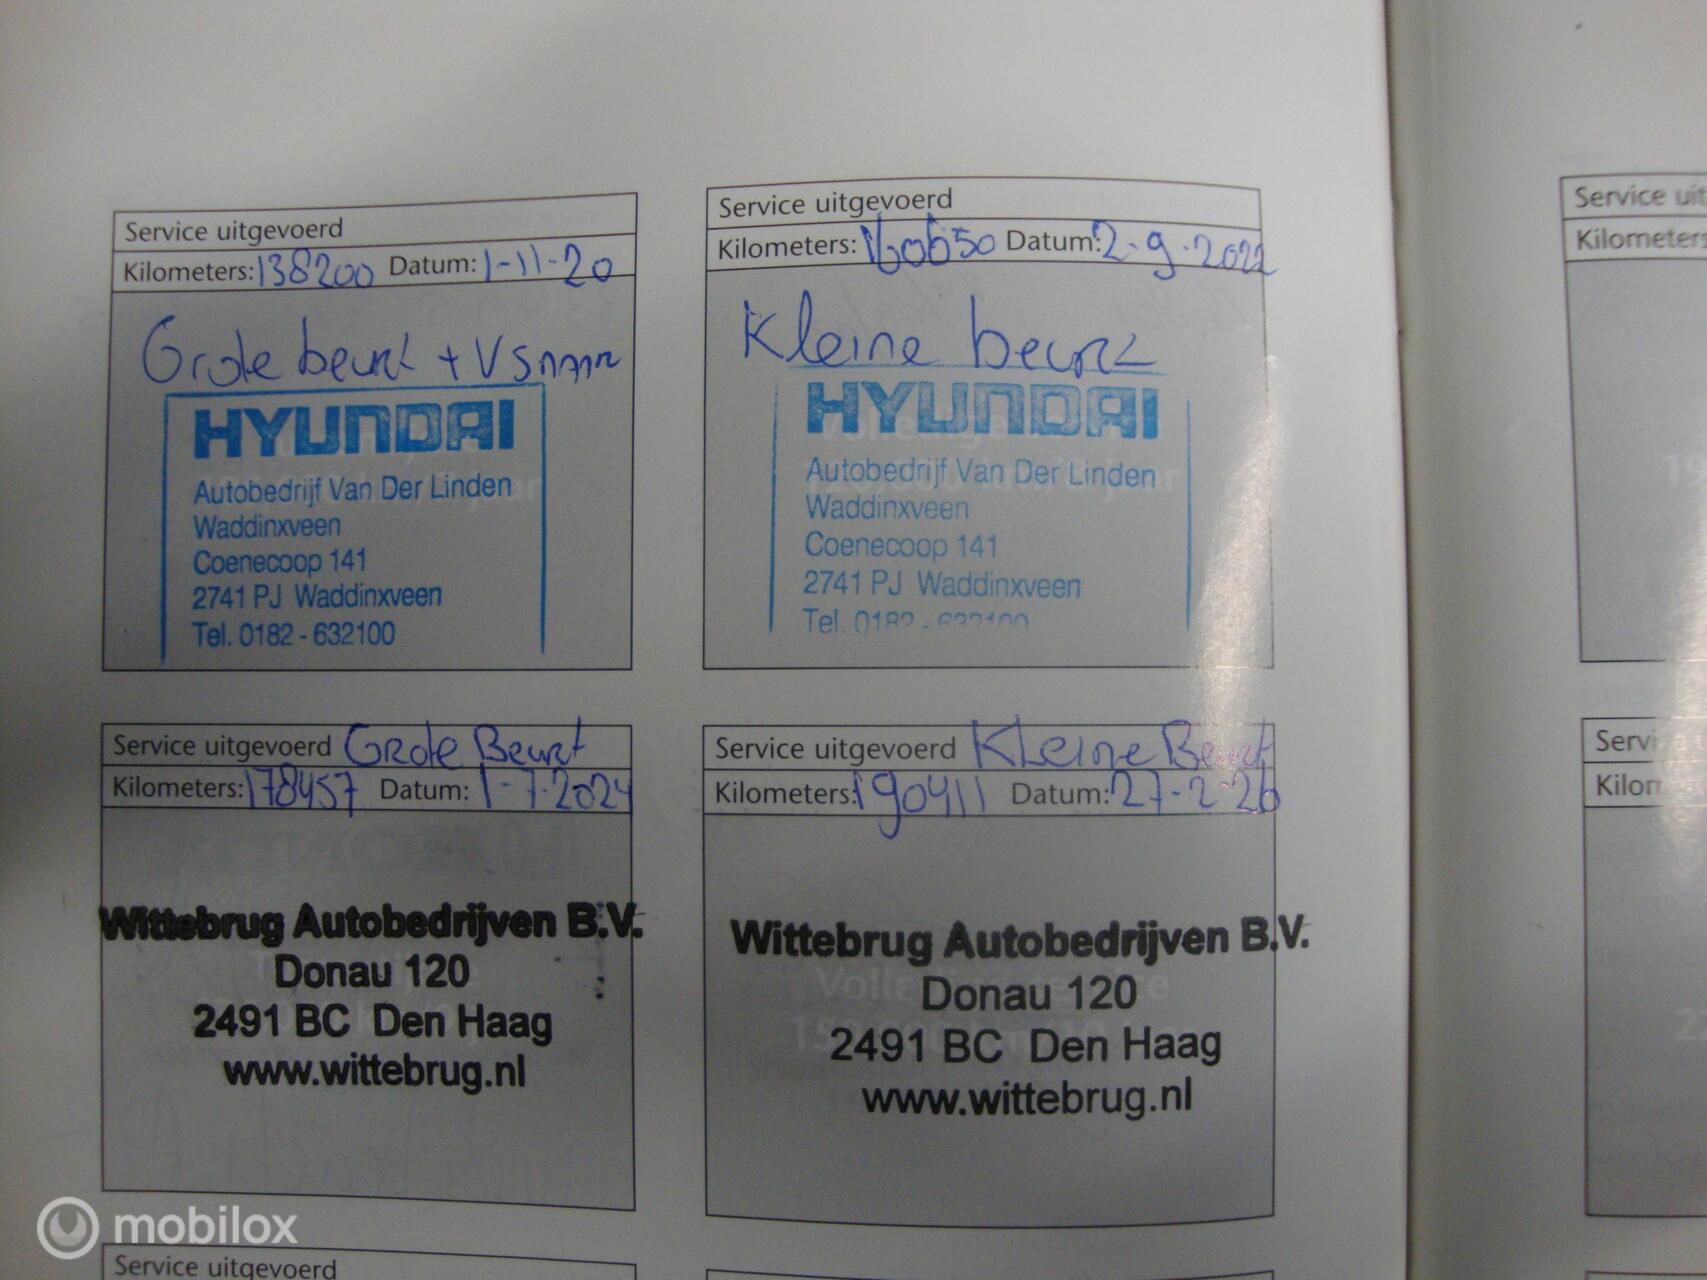 Service uitgevoerd
Kilometers: 138200 Datum: 1-11-20
Grote beurt + V Snaar
HYUNDAI
Autobedrijf Van Der Linden
Waddinxveen
Coenecoop 141
2741 PJ Waddinxveen
Tel. 0182 - 632100
Service uitgevoerd
Kilometers: 160650 Datum: 2-9-2022
Kleine beurt
HYUNDAI
Autobedrijf Van Der Linden
Waddinxveen
Coenecoop 141
2741 PJ Waddinxveen
Tel. 0182 - 632100
Service uitgevoerd Grote Beurt
Kilometers: 178457 Datum: 1-7-2024
Wittebrug Autobedrijven B.V.
Donau 120
2491 BC Den Haag
www.wittebrug.nl
Service uitgevoerd Kleine Beurt
Kilometers: 190411 Datum: 27-2-26
Volledige service
Wittebrug Autobedrijven B.V.
Donau 120
2491 BC Den Haag
www.wittebrug.nl
Service uitgevoerd
Service uit
Kilometers
Servi
Kilom
mobilox